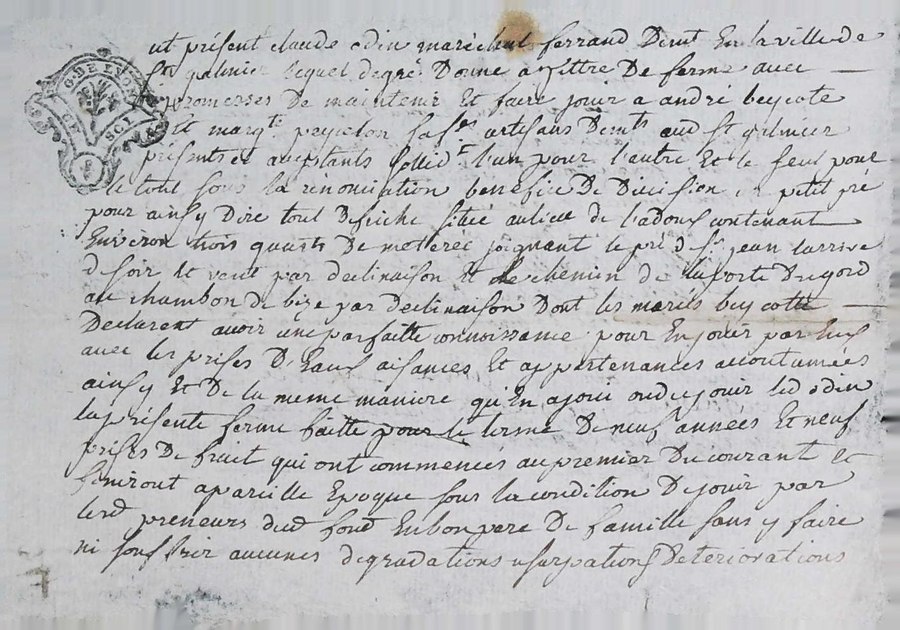 G. DE LYON
2 SOLS
ut présent claude odin maréchal ferrand Demt En la ville de
St galmier lequel de gré Donne a tittre De ferme avec
promesses De maintenir Et faire jouir a andré beycote
Et margte peycelon sa fe artisans Demts aud St galmier
présents et aceptants sollidt l'un pour l'autre Et le seul pour
le tout sous la rénonciation bénéfice De Division un petit pré
pour ainsy Dire tout Défriché sitüé au lieu de l'adoux contenant
Environ trois quarts De meterée joignant le pré de Sr jean larrive
de soir Et vent par déclinaison Et le chemin de la porte Dugord
au chambon de bize par déclinaison Dont les mariés beycotte
Déclarent avoir une parfaitte connoissance pour En jouir par Eux
avec les prises D'Eaux aisances Et appartenances accoutumées
ainsy Et De la meme maniere qu'En a joui ou dû jouir led odin
la présente ferme faitte pour le terme De neuf années Et neuf
prises De fruit qui ont commencés au premier Du courant Et
finiront a pareille Epoque sous la condition De jouir par
lesd preneurs dud fond En bon pere De famille sans y faire
ni souffrir aucunes dégradations usurpations Déteriorations